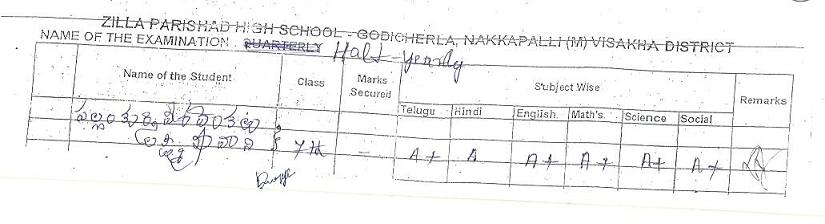 ZILLA PARISHAD HIGH SCHOOL - GODICHERLA, NAKKAPALLI (M) VISAKHA DISTRICT
NAME OF THE EXAMINATION QUARTERLY Half-yearly
Name of the Student Class Marks Secured Subject Wise Remarks
Telugu Hindi English Math's Science Social
7th — A+ A A+ A+ A+ A+